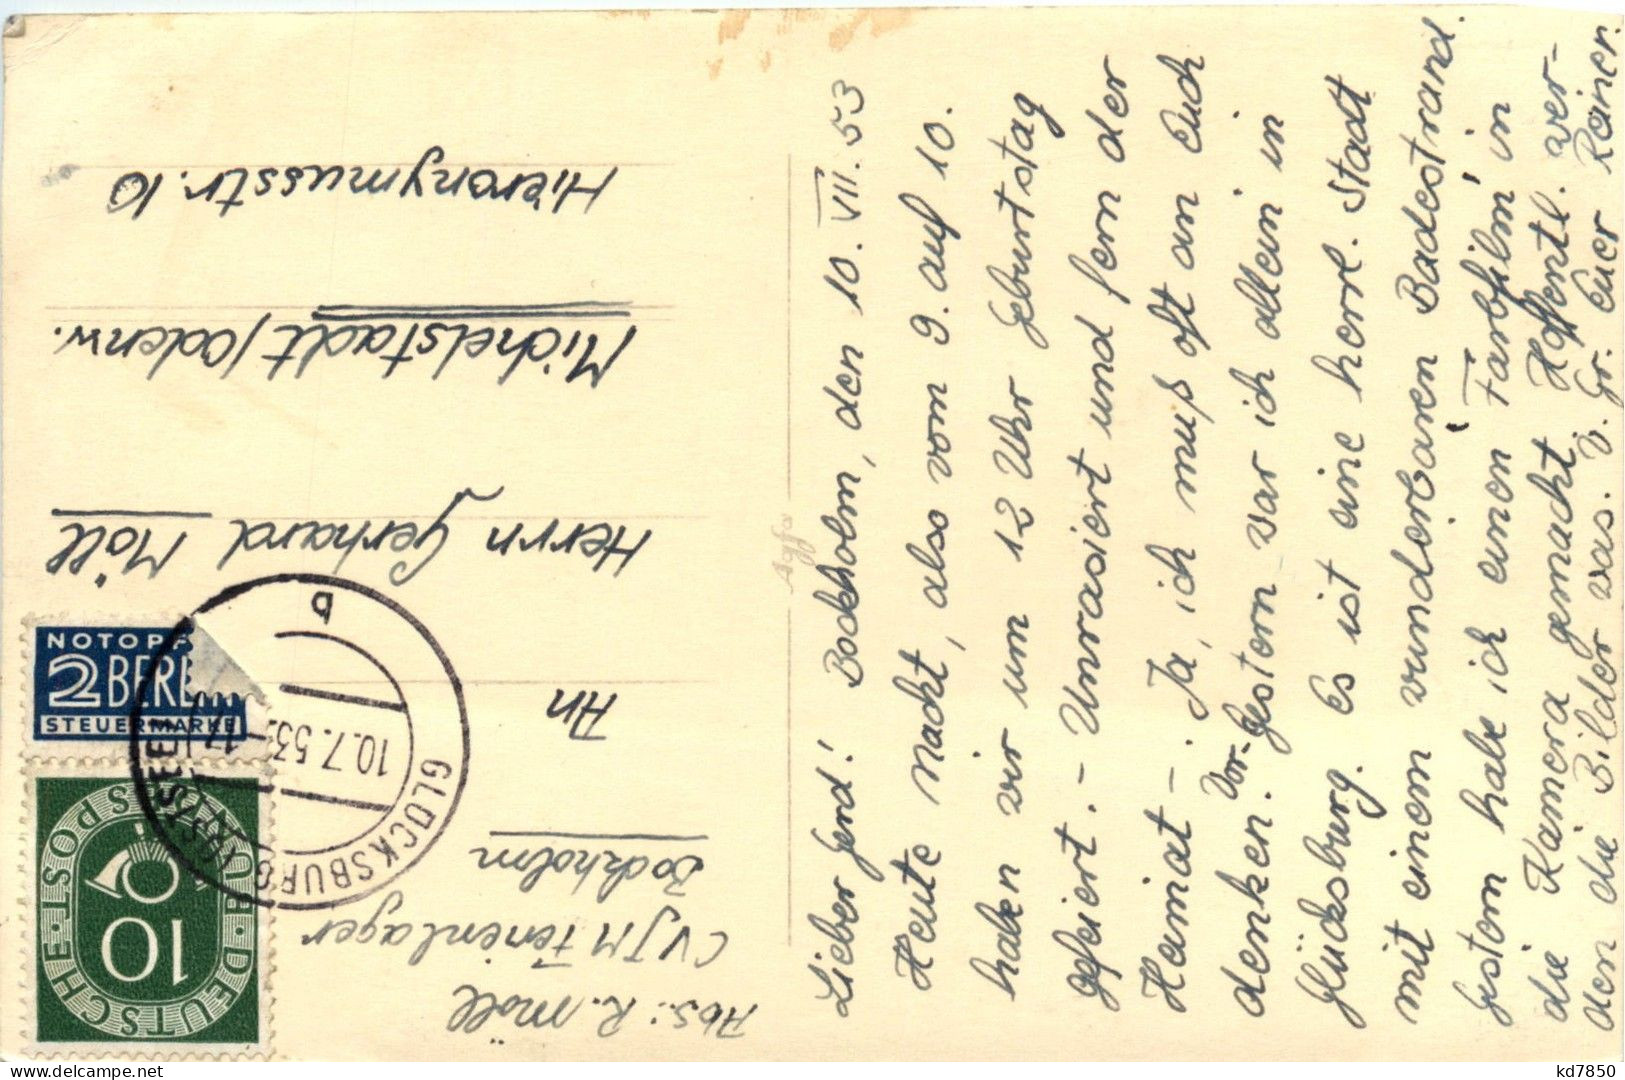 Lieber Gerd! Bockholm, den 10. VII. 53
Heute Nacht, also vom 9. auf 10.
haben wir um 12 Uhr Geburtstag
gefeiert. - Unrasiert und fern der
Heimat -. Ja, ich muß oft an Euch
denken. Vor-Gestern war ich allein in
Glücksburg. Es ist eine herrl. Stadt
mit einem wunderbaren Badestrand.
Gestern habe ich einen Farbfilm in
die Kamera gemacht. Hoffentl. wer-
den die Bilder was. V. Gr. Euer Rainer.
Abs.: R. Möll
CVJM Ferienlager
Bockholm
An
Herrn Gerhard Möll
Michelstadt/Odenw.
Hieronymusstr. 10
DEUTSCHE·BUNDESPOST·
10
NOTOPF
2 BERLIN
STEUERMARKE
GLÜCKSBURG (OSTSEE)
10.7.53
b
Agfa
kd7850